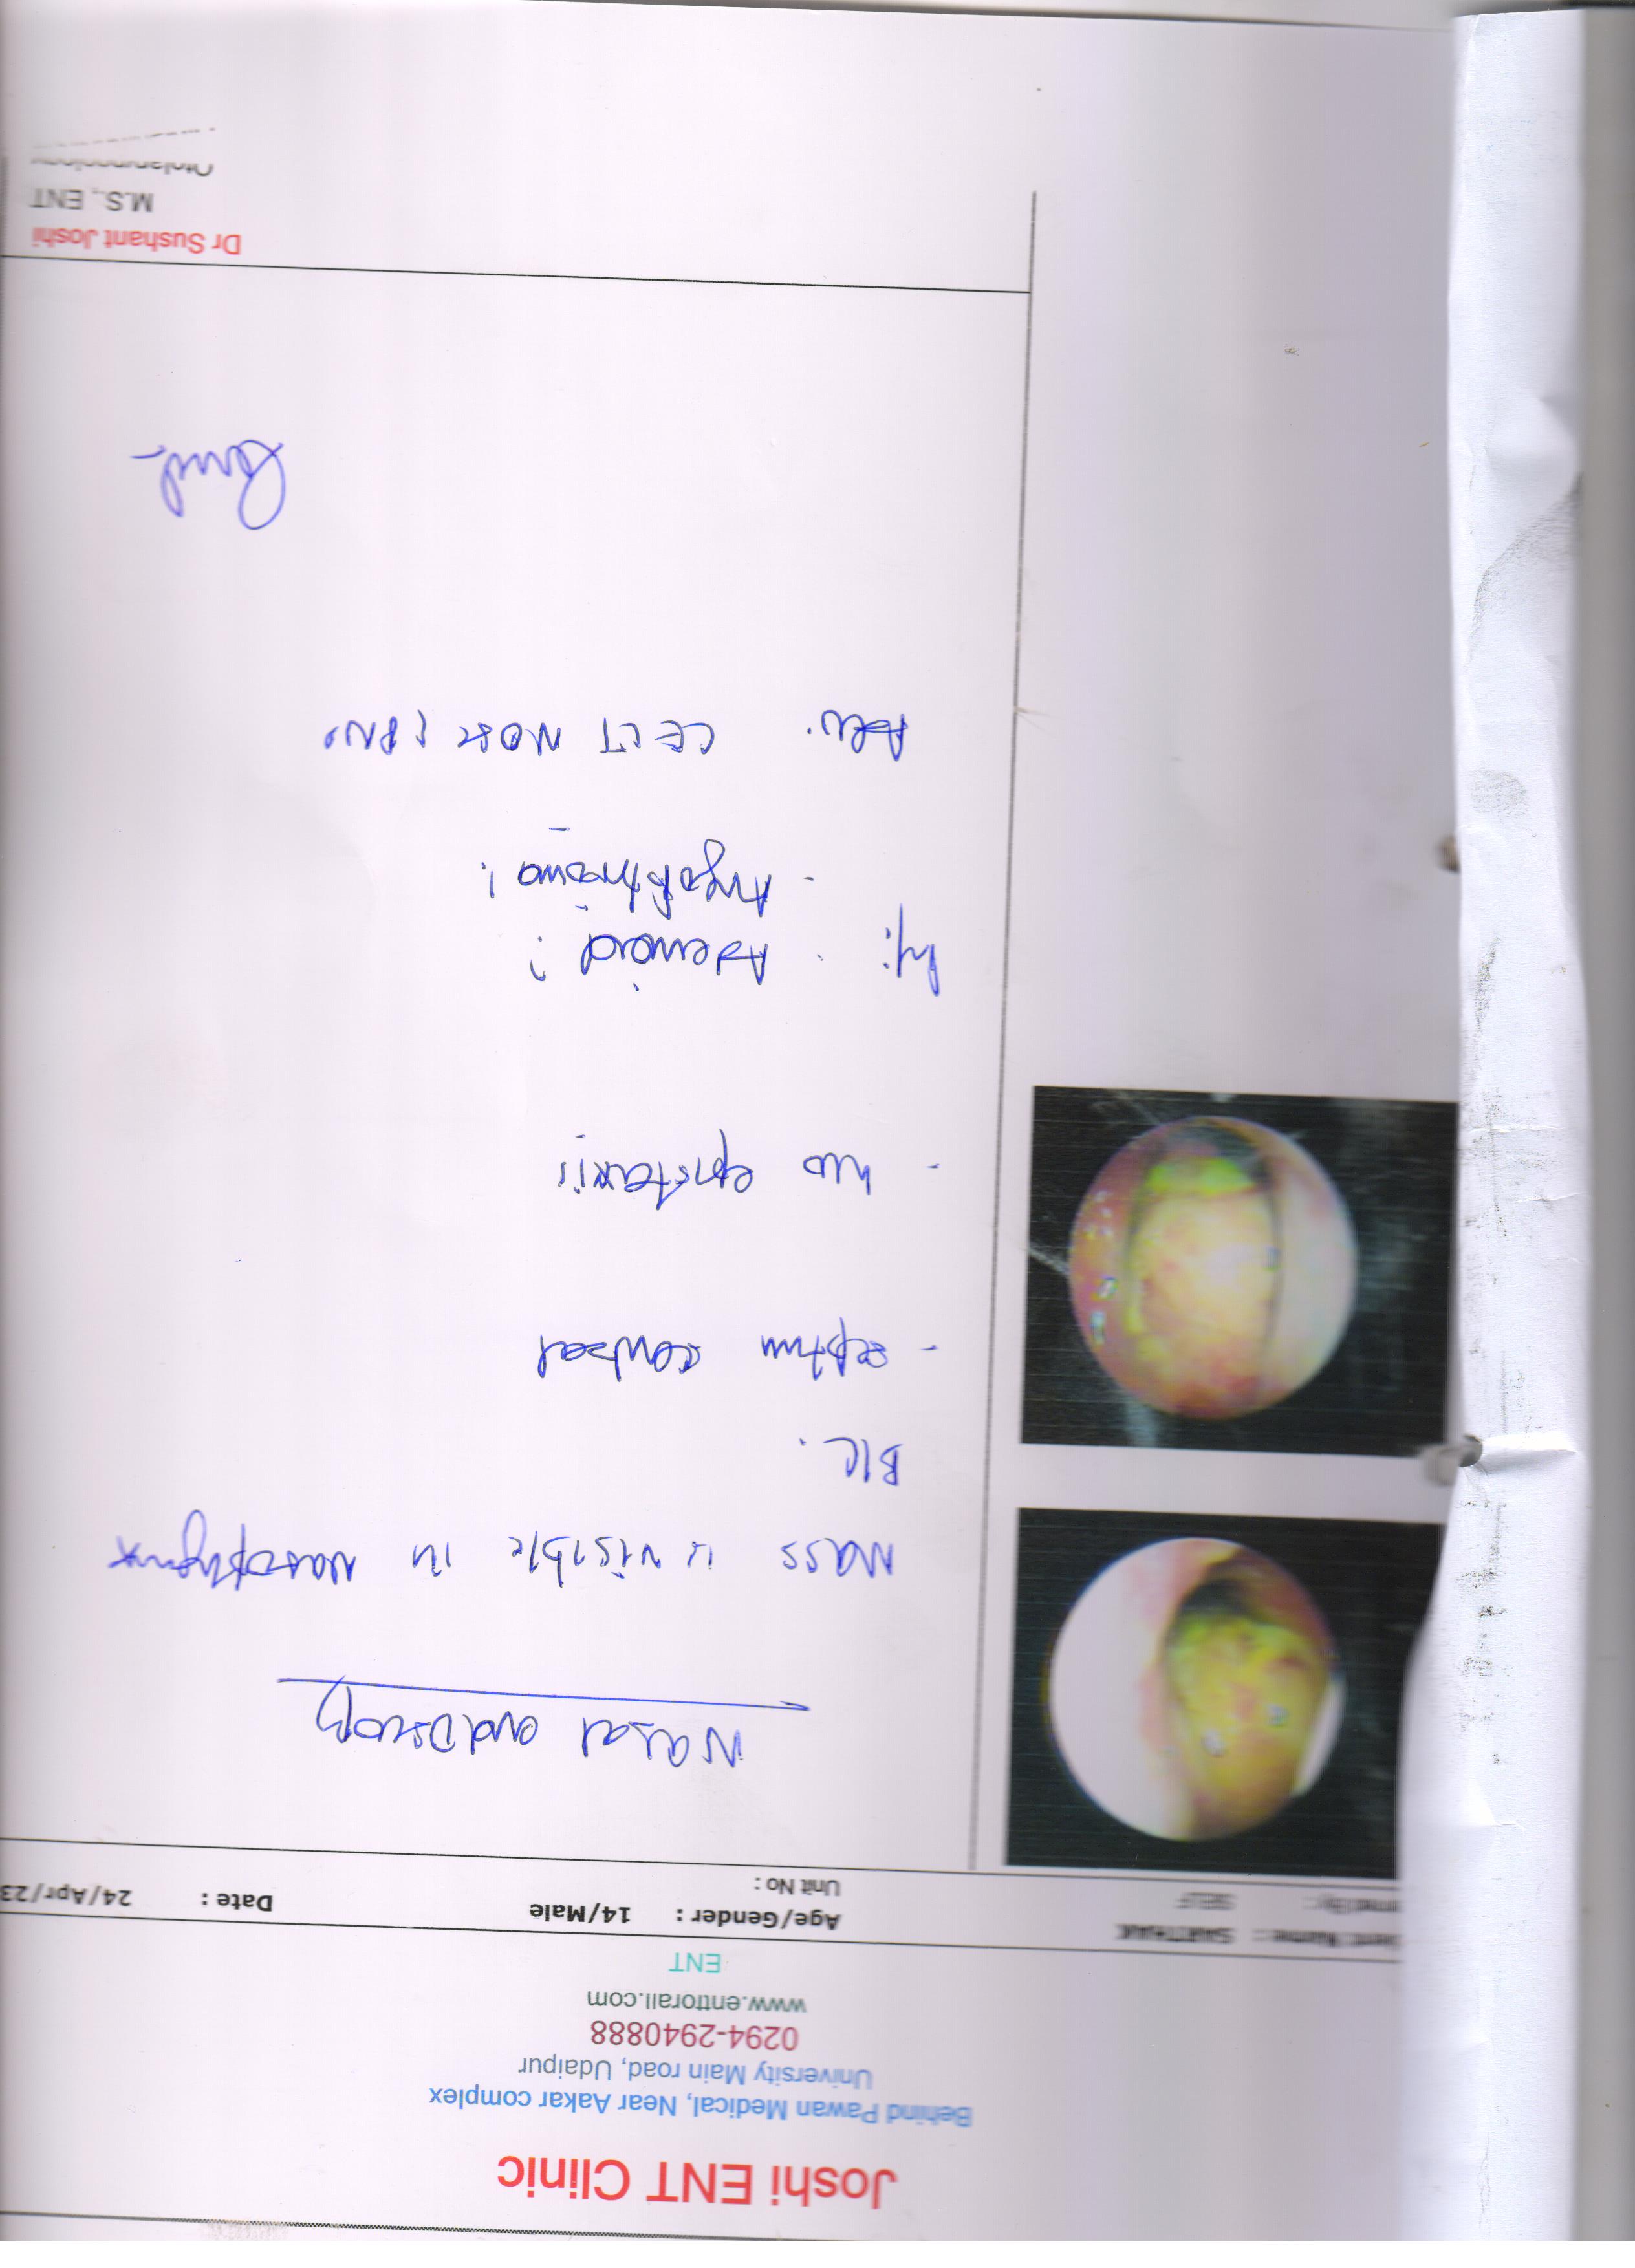 Joshi ENT Clinic
Behind Pawan Medical, Near Aakar complex
University Main road, Udaipur
0294-2940888
www.enttorall.com
ENT
ent Name : SARTHAK
Age/Gender : 14/Male
Date : 24/Apr/23
SELF
Unit No :
Nasal endoscopy
Mass is visible in Nasopharynx
B/L.
- septum central
- H/O epistaxis
Adenoid ?
- Angiofibroma ?
Adv. CECT NOSE & PNS
Dr Sushant Joshi
M.S., ENT